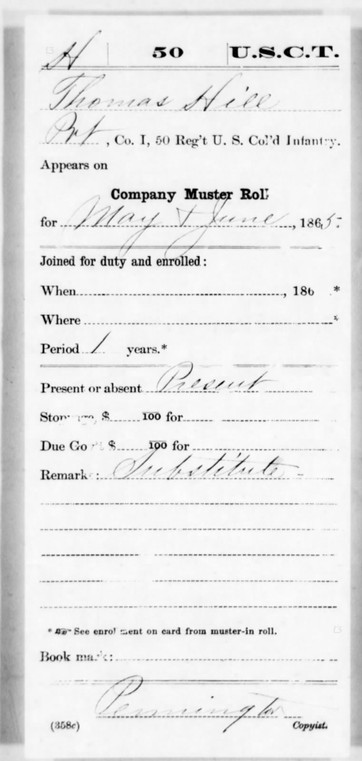 H | 50 | U.S.C.T.
Thomas Hill
Pvt, Co. I, 50 Reg't U. S. Col'd Infantry.
Appears on
Company Muster Roll
for May & June, 1865.
Joined for duty and enrolled:
When, 186 *
Where *
Period 1 years.*
Present or absent Present
Stoppage, $ 100 for
Due Gov't, $ 100 for
Remarks: Substitute
* See enrollment on card from muster-in roll.
Book mark:
Pennington
(358c) Copyist.